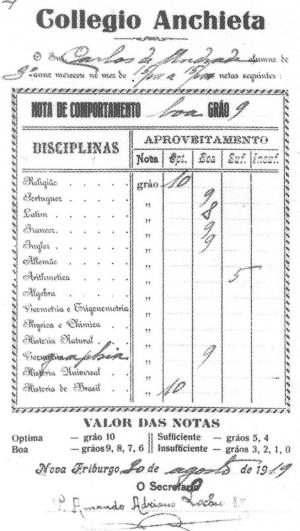 Collegio Anchieta
O Snr. Carlos de Andrade alumno de
3º anno mereceu no mez de notas seguintes:
NOTA DE COMPORTAMENTO boa GRÁO 9
DISCIPLINAS APROVEITAMENTO
Nota Opt. Boa Suf. Insuf.
Religião . . . . gráo 10
Portuguez . . . . „ 9
Latim . . . . . „ 8
Francez . . . . „ 9
Inglez . . . . . „ 9
Allemão . . . . „
Arithmetica . . . . „ 5
Algebra . . . . „
Geometria e Trigonometria „
Physica e Chimica . . „
Historia Natural . . „
Geographia . . . „ 9
Historia Universal . . „
Historia do Brasil . . „ 10
VALOR DAS NOTAS
Optima — gráo 10 Sufficiente — gráos 5, 4
Boa — gráos 9, 8, 7, 6 Insufficiente — gráos 3, 2, 1, 0
Nova Friburgo, 20 de agosto de 1919
O Secretario
P. Armando Adriano Lochu S. J.